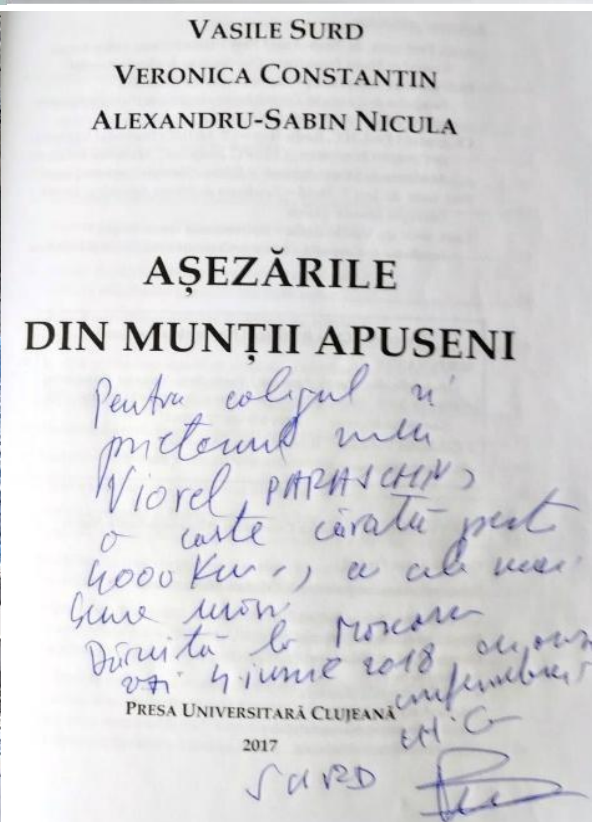 VASILE SURD
VERONICA CONSTANTIN
ALEXANDRU-SABIN NICULA
AȘEZĂRILE
DIN MUNȚII APUSENI
Pentru colegul și
prietenul meu
Viorel PARASCHIV,
o carte cărată peste
4000 Km., cu cele mai
bune urări
Dăruită la Moscova
azi 4 iunie 2018
conferinței
PRESA UNIVERSITARĂ CLUJEANĂ
2017
SURD